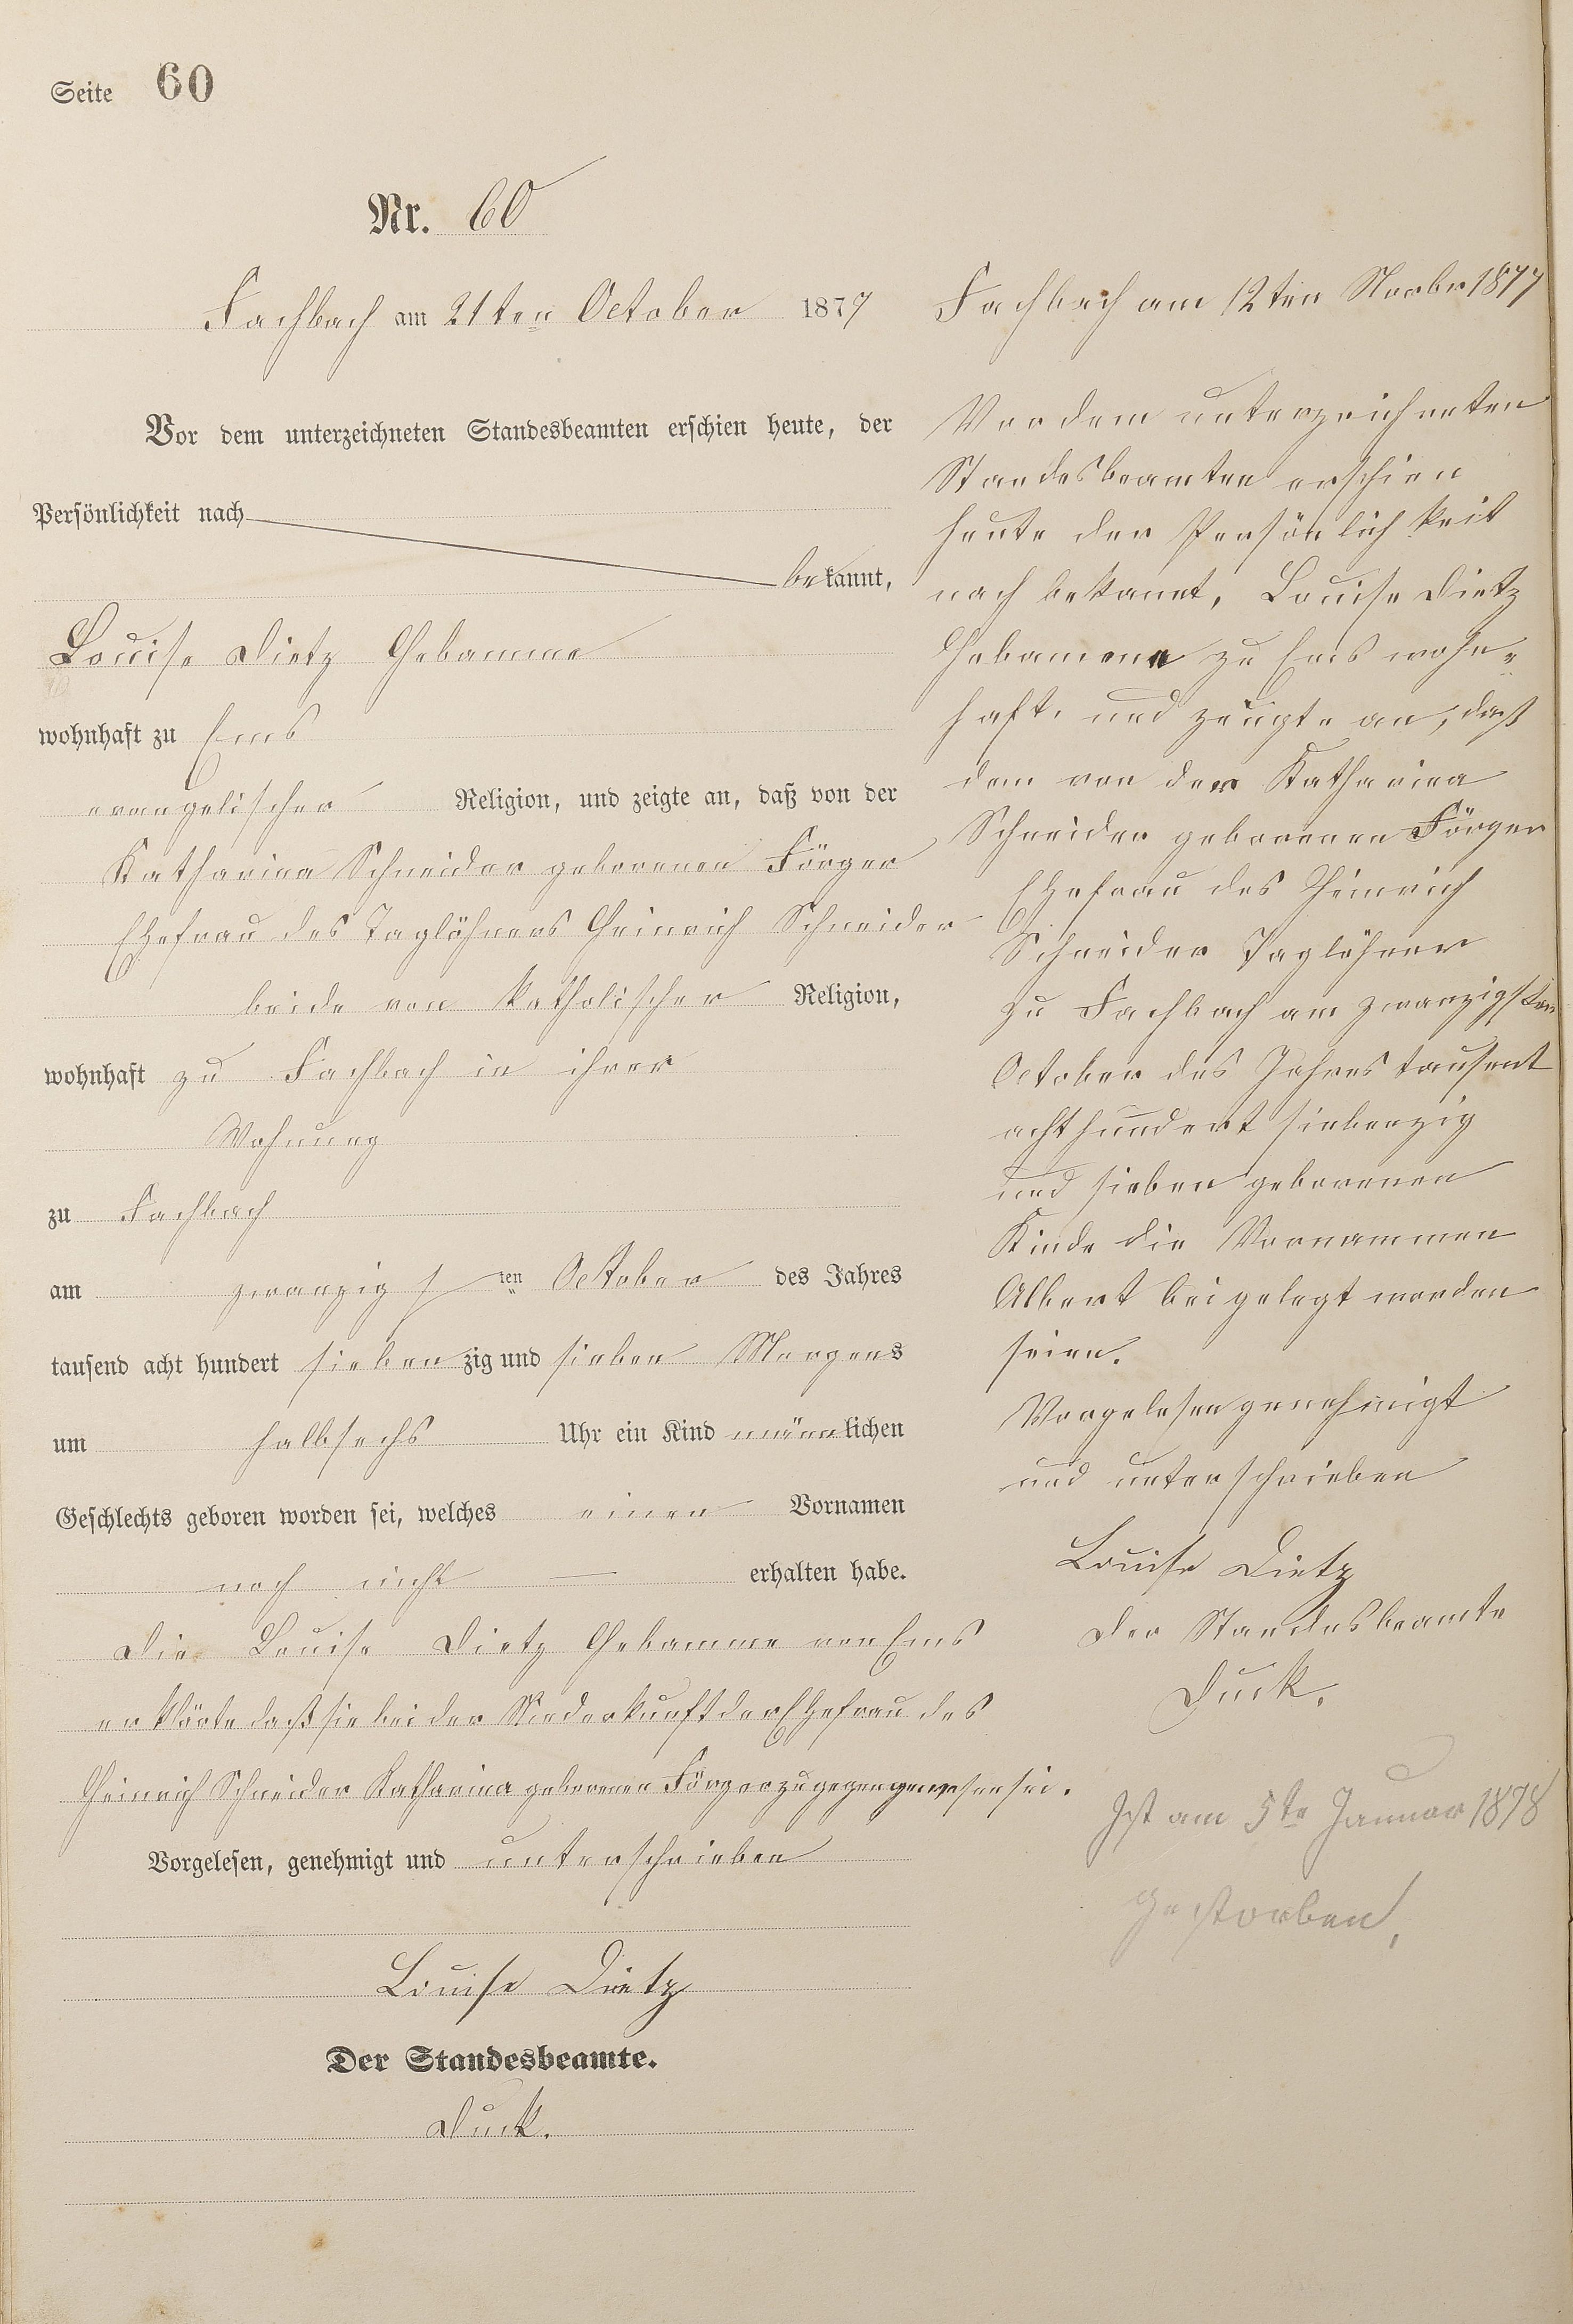 Seite 60
Nr. 60
Fachbach am 21ten October 1877
Vor dem unterzeichneten Standesbeamten erschien heute, der
Persönlichkeit nach
bekannt,
Louise Dietz Hebamme
wohnhaft zu Ems
evangelischer Religion, und zeigte an, daß von der
Katharina Schneider geborenen Förger
Ehefrau des Taglöhners Heinrich Schneider
beide von katholischer Religion,
wohnhaft zu Fachbach in ihrer
Wohnung
zu Fachbach
am zwanzigsten October des Jahres
tausend acht hundert siebenzig und sieben Morgens
um halbsechs Uhr ein Kind männlichen
Geschlechts geboren worden sei, welches einen Vornamen
noch nicht erhalten habe.
Die Louise Dietz Hebamme von Ems
erklärte daß sie bei der Niederkunft der Ehefrau des
Heinrich Schneider Katharina geborenen Förger zugegen gewesen sei.
Vorgelesen, genehmigt und unterschrieben
Louise Dietz
Der Standesbeamte.
Duck.
Fachbach am 12ten Novbr 1877
Vor dem unterzeichneten
Standesbeamten erschien
heute der Persönlichkeit
nach bekannt, Louise Dietz
Hebamme zu Ems wohn-
haft. und zeugte an, daß
dem von der Katharina
Schneider geborenen Förger
Ehefrau des Heinrich
Schneider Taglöhner
zu Fachbach am zwanzigsten
October des Jahres tausent
achthundert siebenzig
und sieben geborenen
Kinde die Vornammen
Albert beigelegt worden
seien.
Vorgelesen genehmigt
und unterschrieben
Louise Dietz
Der Standesbeamte
Duck.
Ist am 5te Januar 1878
gestorben,